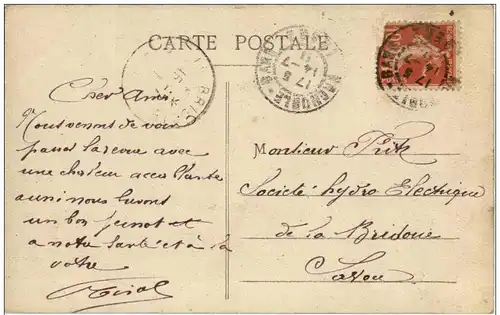 CARTE POSTALE
Cher Ami
Nous venons de voir
passer la revue avec
une chaleur accablante
aussi nous buvons
un bon pernot et
a notre santé et à la
votre
Monsieur
Société hydro Electrique
de la Bridoire
Savoie
17 5
14 -7